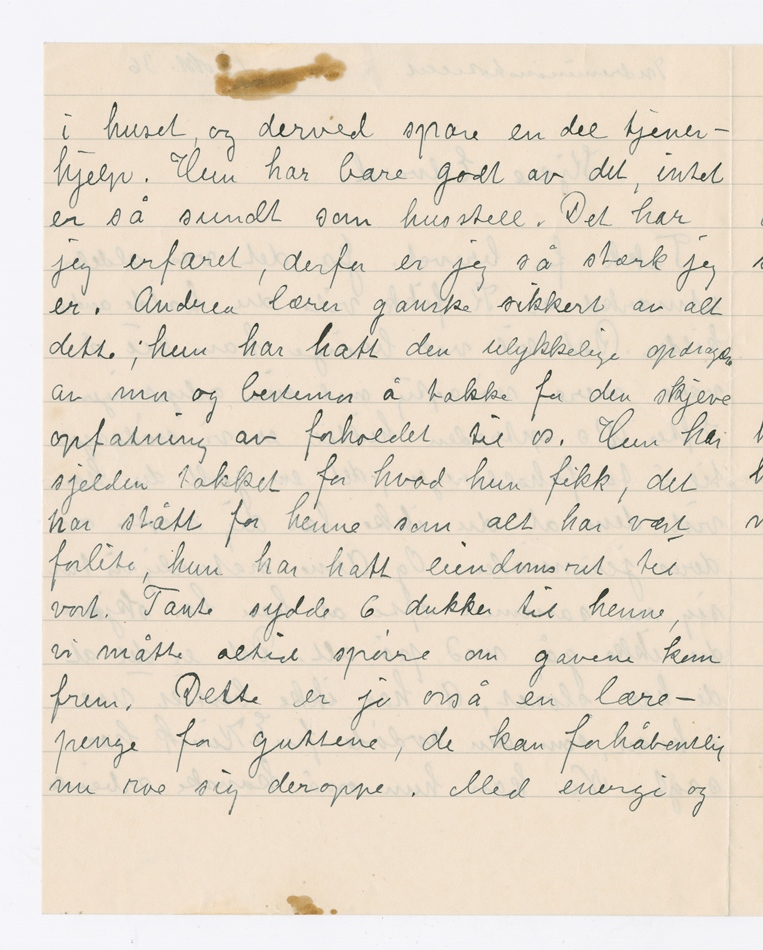 i huset, og derved spare en del tjener-
hjelp. Hun har bare godt av det, intet
er så sundt som husstell. Det har
jeg erfaret, derfor er jeg så stærk jeg
er. Andrea lærer ganske sikkert av alt
dette; hun har hatt den ulykkelige opdragelse
av mor og bestemor å takke for den skjeve
opfatning av forholdet til os. Hun har
sjelden takket for hvad hun fikk, det
har stått for henne som alt har vært
forlite, hun har hatt eiendomsret til
vort. Tante sydde 6 dukker til henne,
vi måtte altid spørre om gavene kom
frem. Dette er jo også en lære-
penge for guttene, de kan forhåbentlig
nu roe sig deroppe. Med energi og